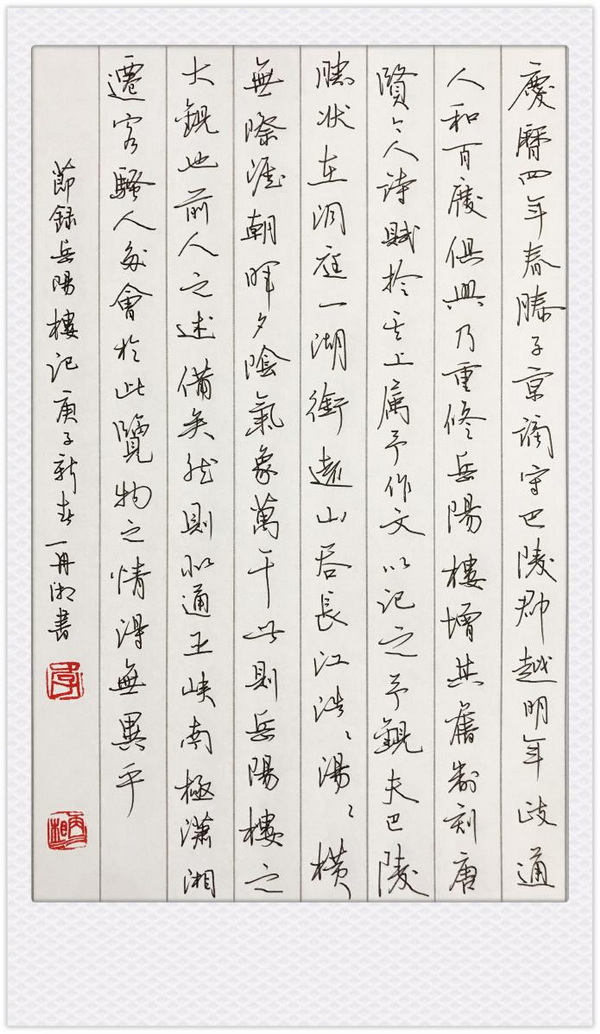 慶曆四年春滕子京謫守巴陵郡越明年政通
人和百廢俱興乃重修岳陽樓增其舊制刻唐
賢今人詩賦於其上属予作文以記之予觀夫巴陵
勝状在洞庭一湖銜遠山吞長江浩、湯、橫
無際涯朝暉夕陰氣象萬千此則岳陽樓之
大觀也前人之述備矣然則北通巫峽南極瀟湘
遷客騷人多會於此覽物之情得無異乎
節録岳陽樓記庚子新春湘書